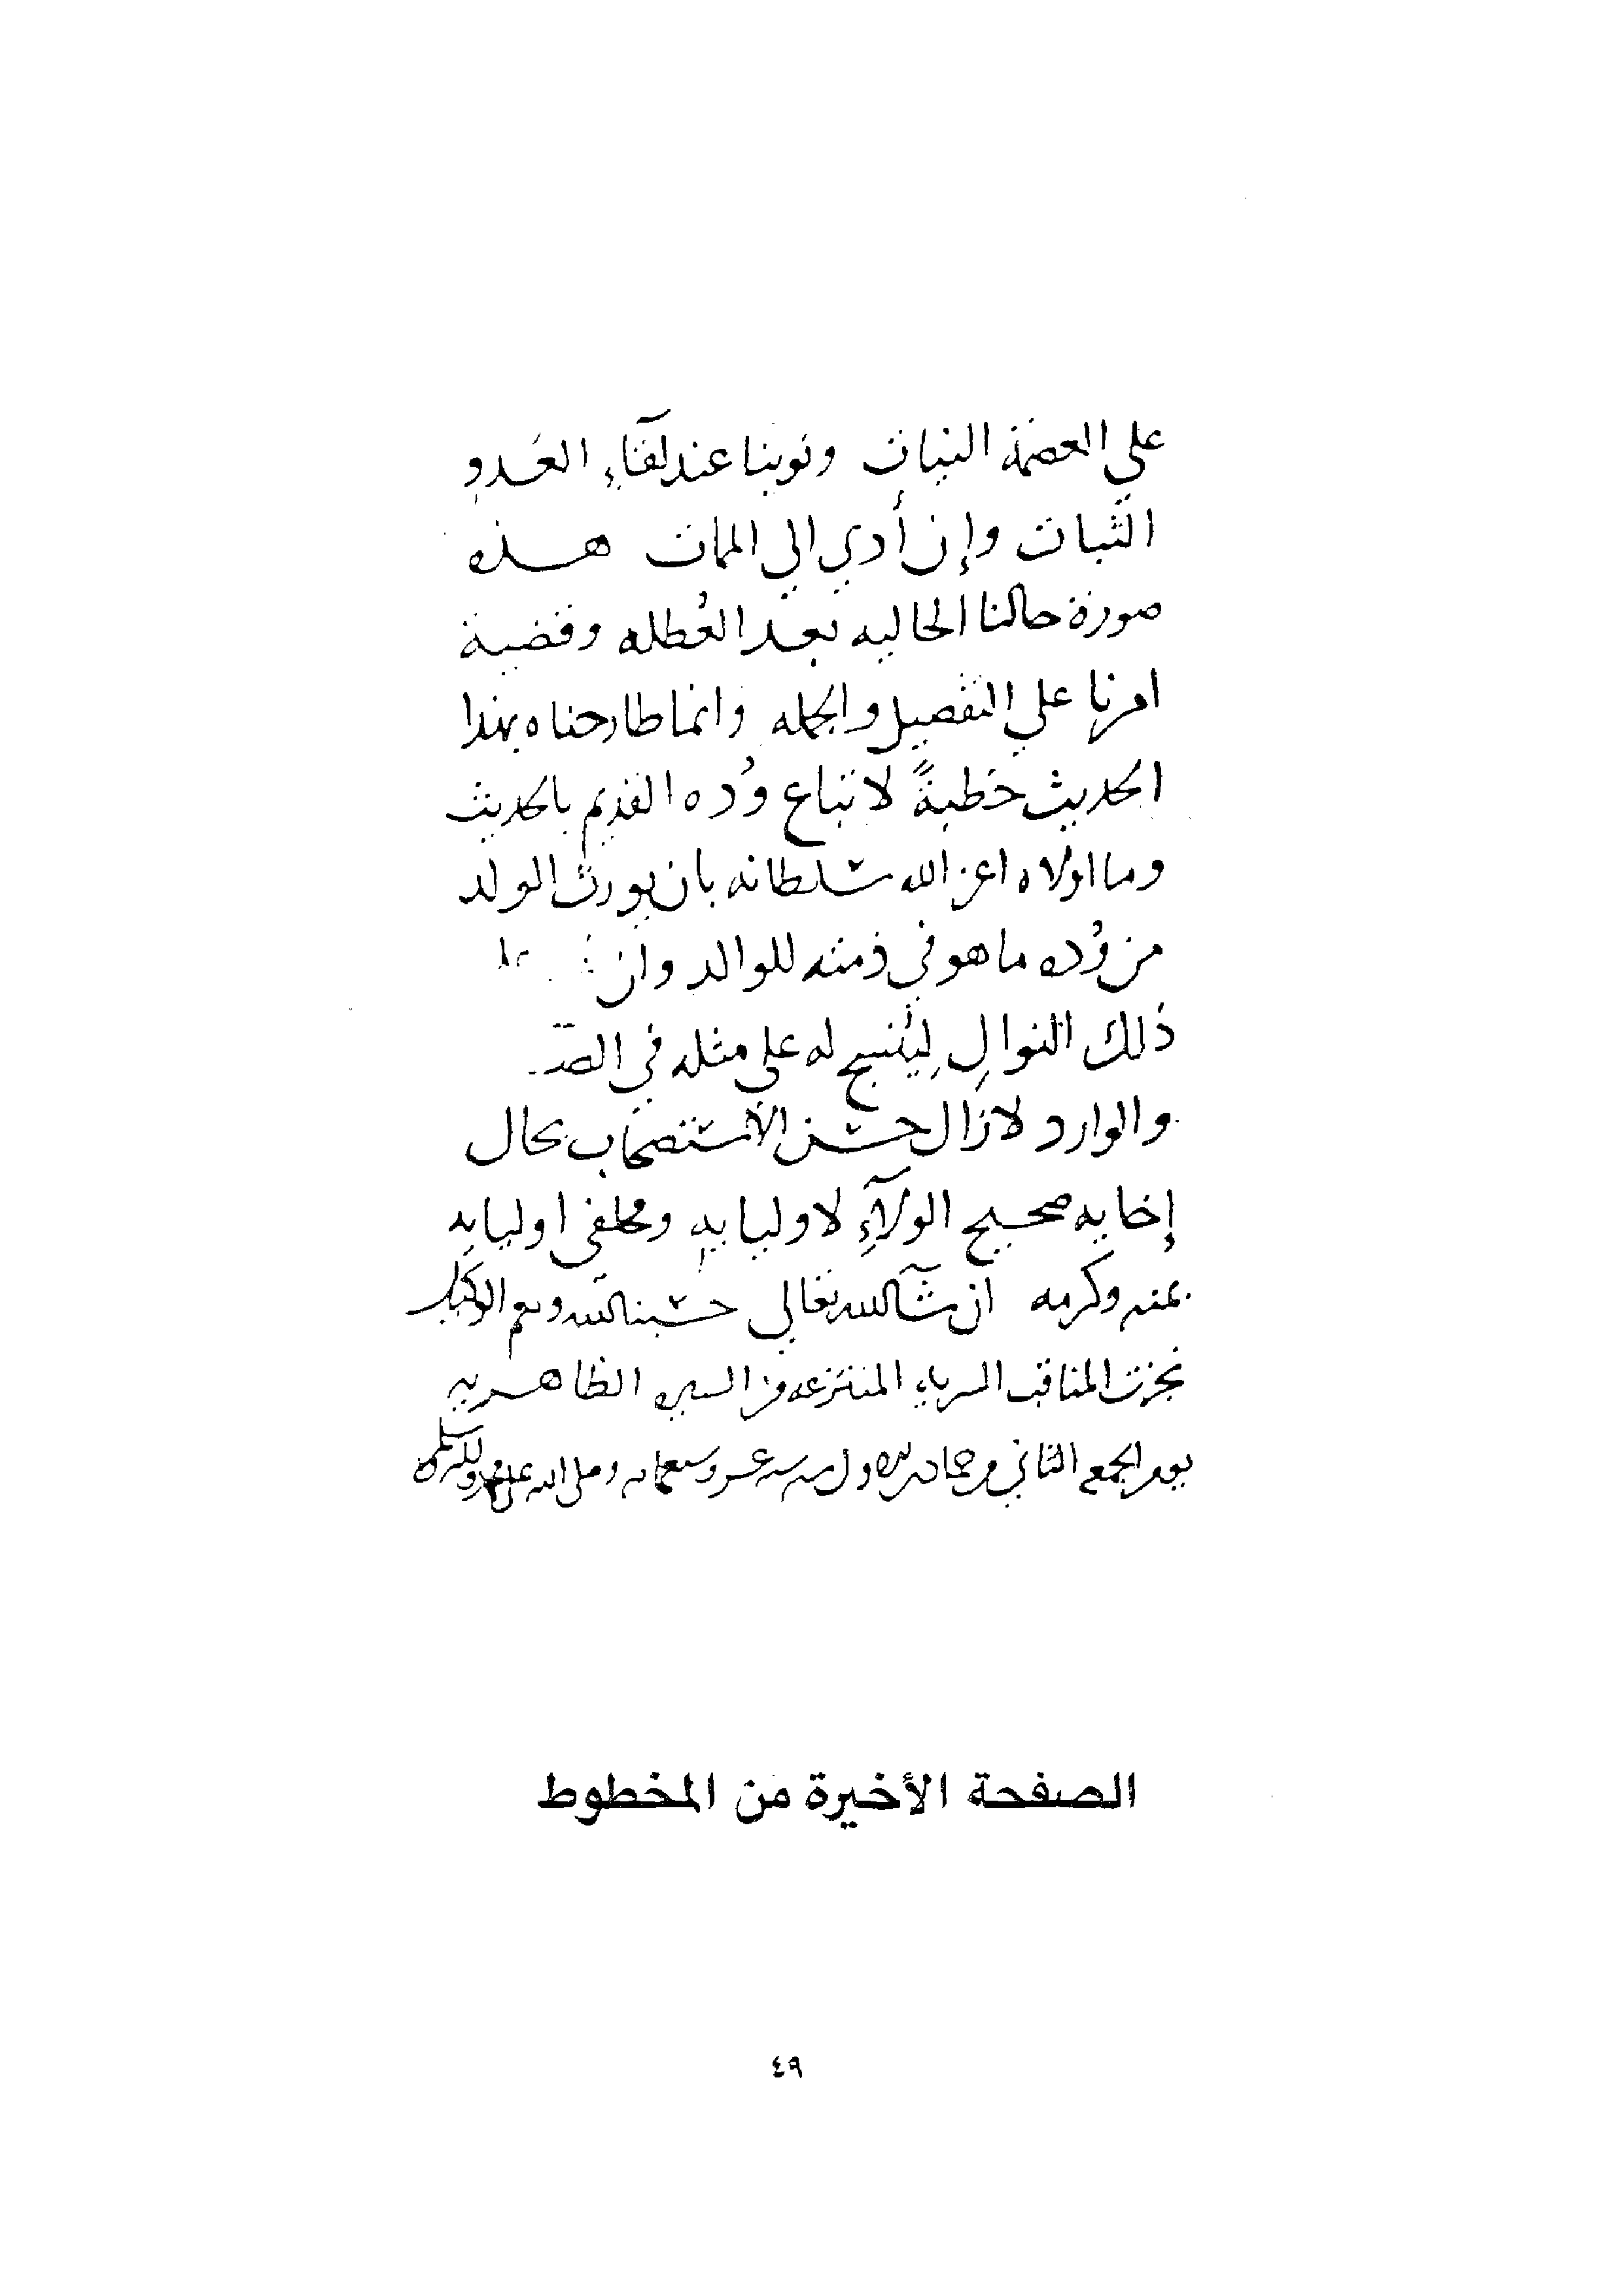 على العصمة النيات ونوينا عند لقآء العَدو
الثَبات وإن أدي الي الممات هذه
صورة حالنا الحاليه بعد العُطله وقضية
امرنا علي التفصيل والجمله وانما طارحناه بهذا
الحديث خطبةً لاتباع وُده القديم بالحديث
وما اولاه اعز الله سلطانه بان يورث الولد
من وُده ما هو في ذمته للوالد وان
ذلك النوالِ لِيُنسج له علي مثله في
والوارد لازال حسن الاستصحاب بحال
إخايه صحيح الولآءِ لاوليايه ومحلفى اوليايه
بمنه وكرمه ان شآ الله تعالي حسبنا الله ونعم الوكيل
نجزت المناقب السريه المنتزعه من السيره الظاهريه
يوم الجمعه الثاني من جمادى الاول سنه ست عشر وسبعمائه وصلى الله على محمد واله وسلم
الصفحة الأخيرة من المخطوط
٤٩